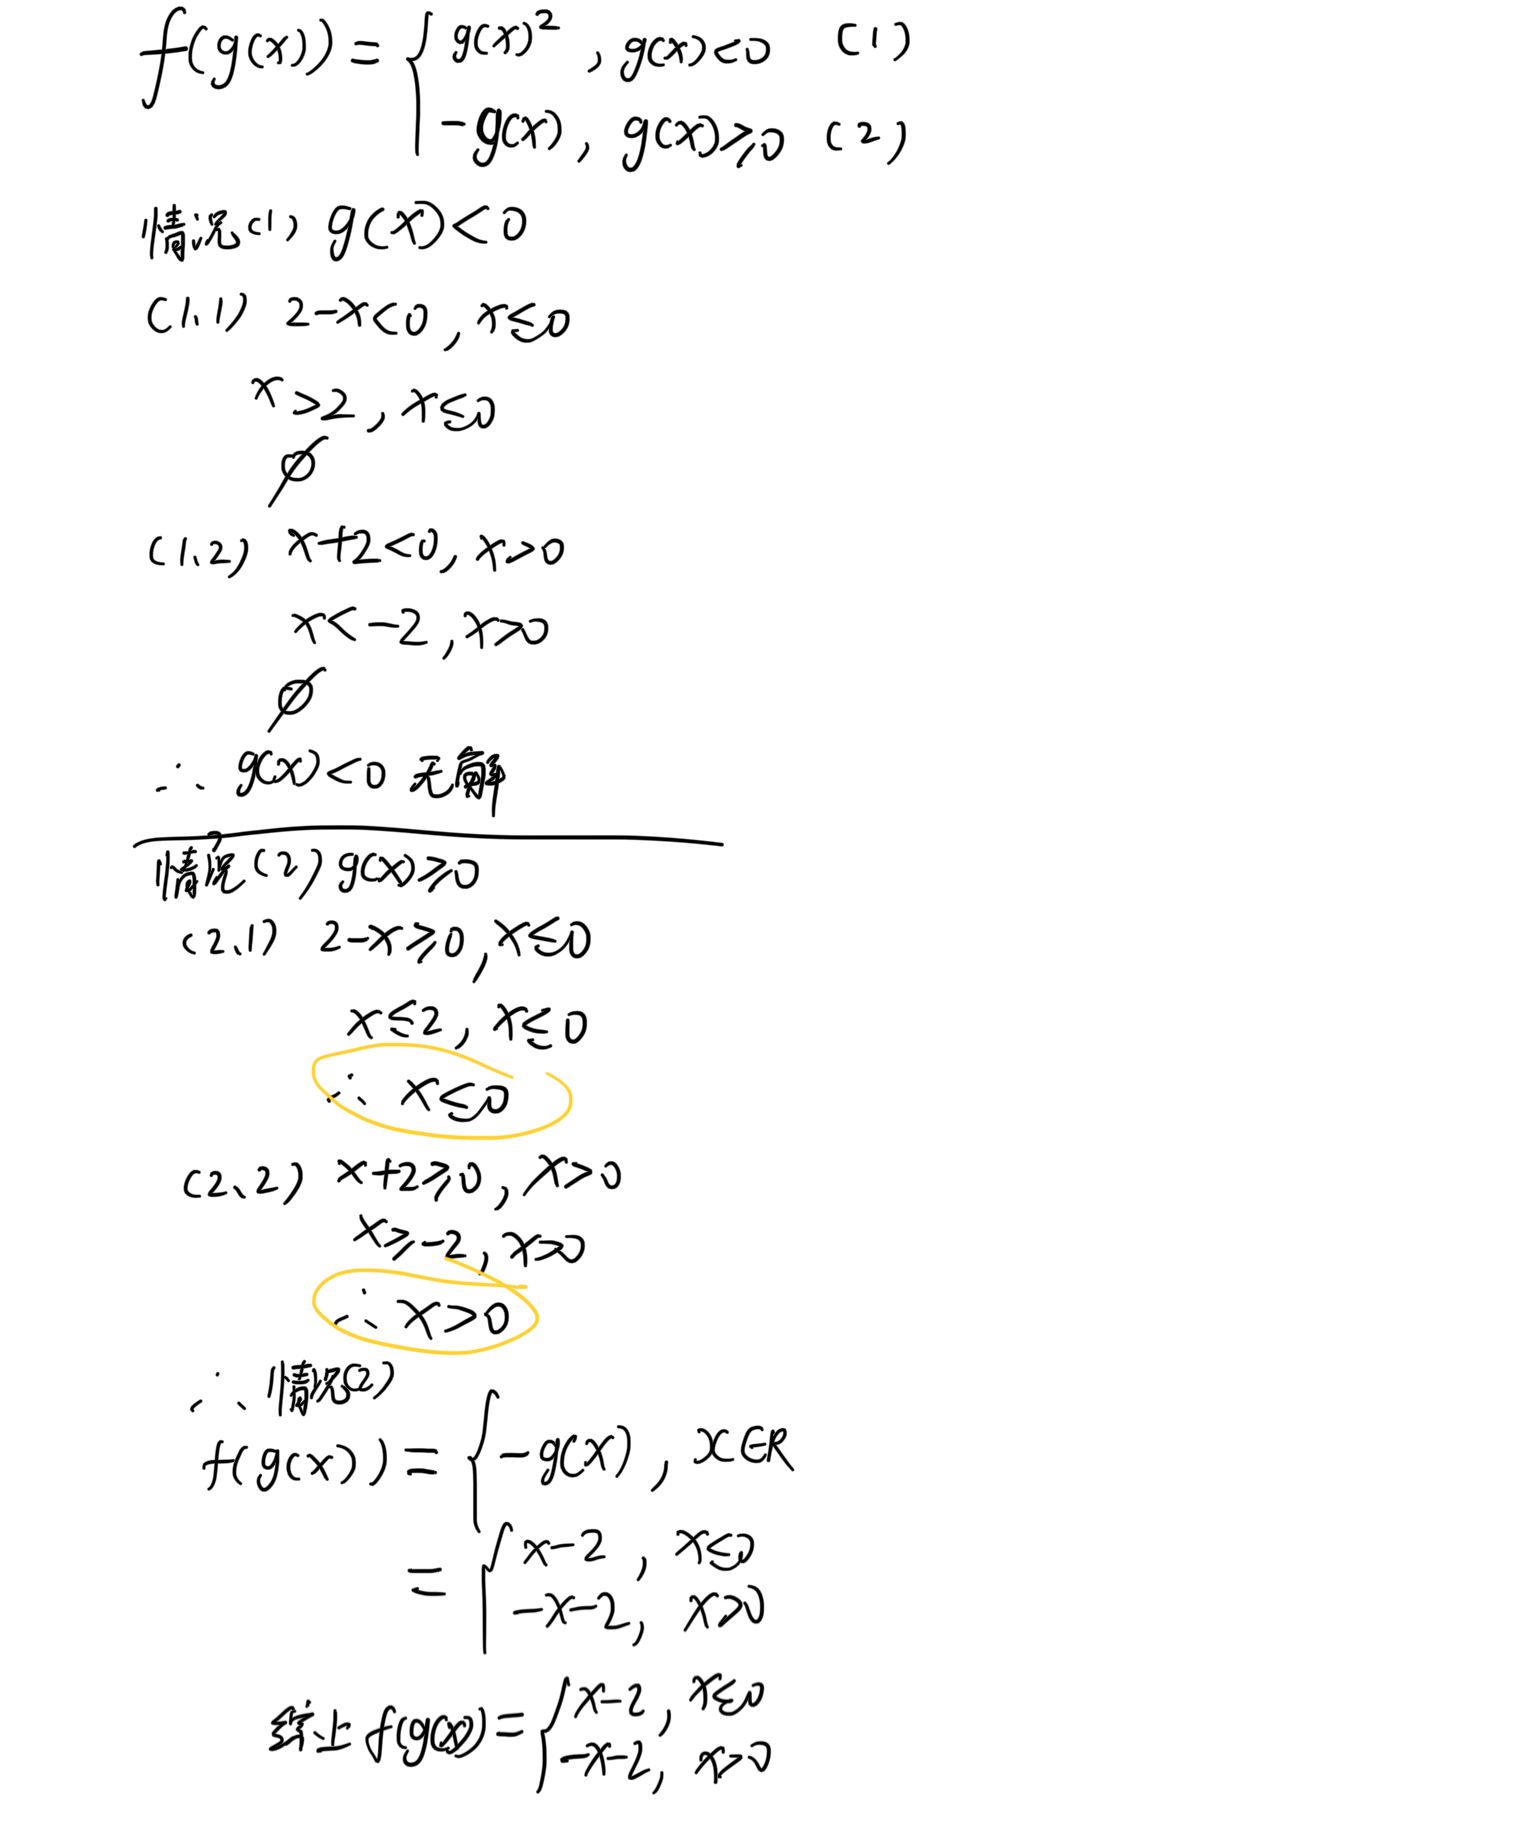 f(g(x)) = { g(x)², g(x)<0 (1)
-g(x), g(x)≥0 (2)
情况(1) g(x)<0
(1、1) 2-x<0, x≤0
x>2, x≤0
∅
(1、2) x+2<0, x>0
x<-2, x>0
∅
∴ g(x)<0 无解
情况(2) g(x)≥0
(2、1) 2-x≥0, x≤0
x≤2, x≤0
∴ x≤0
(2、2) x+2≥0, x>0
x≥-2, x>0
∴ x>0
∴ 情况(2)
f(g(x)) = { -g(x), x∈R
= { x-2, x≤0
-x-2, x>0
综上 f(g(x)) = { x-2, x≤0
-x-2, x>0